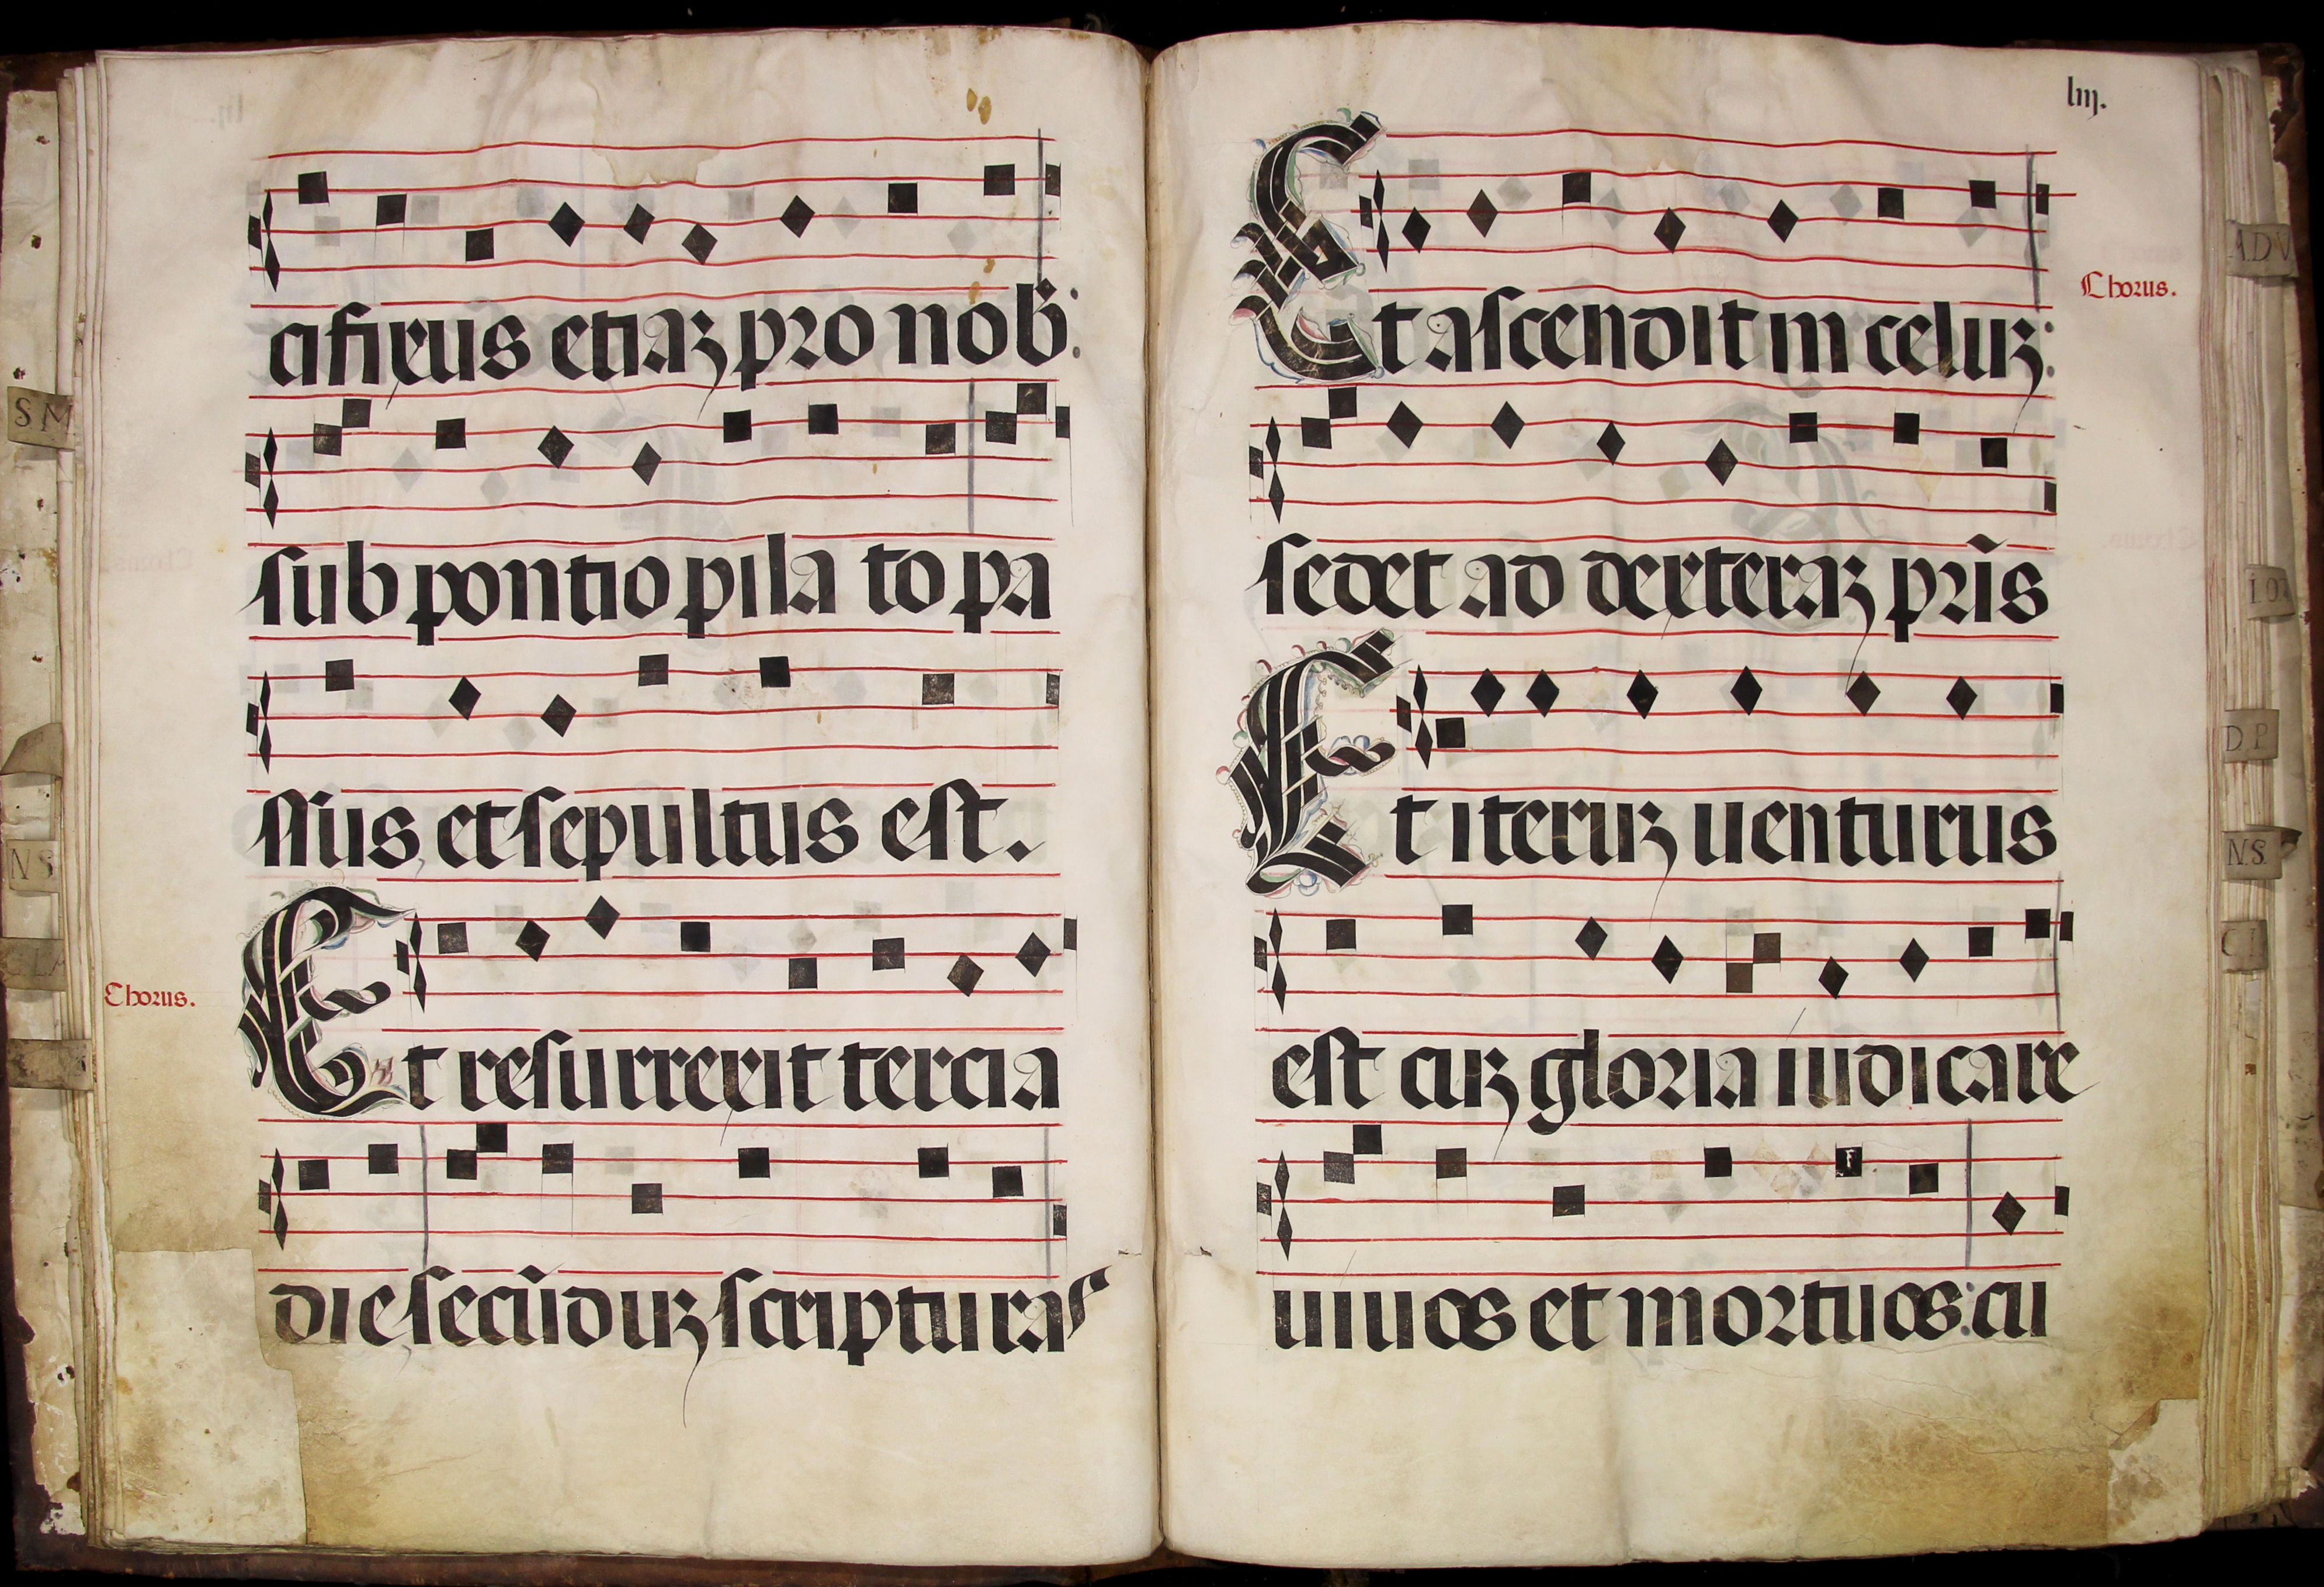 cifixus etiaz pro nob:
sub pontio pila to pa
ssus et sepultus est.
Chorus.
Et resurrexit tercia
die secūduz scripturas
liij.
Et ascendit in celuz:
Chorus.
sedet ad dexteraz pr̄is
Et iteruz uenturus
est cuz gloria iudicare
uiuos et mortuos: cu
S M
N S
LA
ADV
I OZ
D P
N.S.
C I